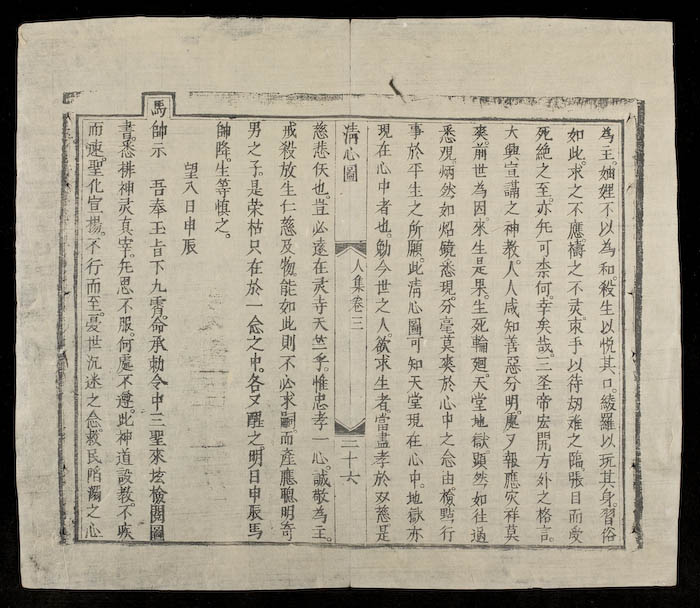 為主妯娌不以為和殺生以悅其口綾羅以玩其身習俗
如此求之不應禱之不灵束手以待刼难之臨張目而受
死絕之至亦无可柰何幸矣哉三圣帝宏開方外之格言
大興宣講之神教人人咸知善惡分明處又報應灾祥莫
爽前世為因來生是果生死輪廻天堂地獄顯然如往過
悉覌炳然如炤鏡悉現分毫莫爽於心中之念由檢點行
事於平生之所願此清心圖可知天堂現在心中地獄亦
現在心中者也勉今世之人欲求生者當盡孝於双慈是
清心圖
人集卷三
二十六
慈悲佚也豈必遠在灵寺天竺乎惟忠孝一心誠敬為主
戒殺放生仁慈及物能如此則不必求嗣而產應聰明奇
男之子是荣枯只在於一念之中各又醒之明日申辰馬
帥降生等慎之
望八日申辰
馬帥示 吾奉玉旨下九霄命承勅令中三聖來坛檢閱圖
書悉排神灵真宰无思不服何處不遵此神道設教不疾
而速聖化宣揚不行而至憂世沉迷之念救民陷濁之心